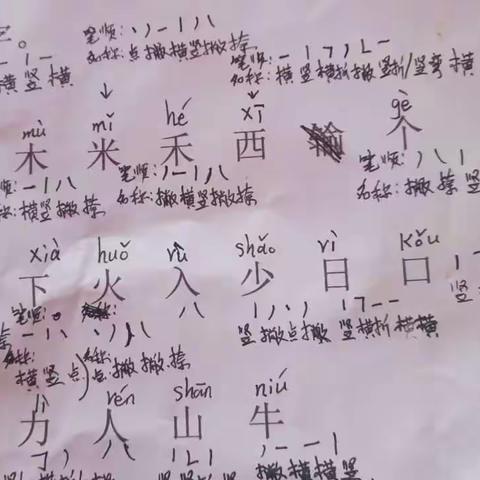 笔顺：丶丿一丨丿乀
名称：点撇横竖撇捺
一丨一
横竖横
笔顺：一丨㇕丿乚一
名称：横竖横折撇竖折/竖弯横
mù mǐ hé xī gè
木 米 禾 西 个
一丨丿乀
横竖撇捺
笔顺：丿一丨丿乀
名称：撇横竖撇捺
笔顺：丿乀丨
名称：撇捺竖
xià huǒ rù shǎo rì kǒu
下 火 入 少 日 口
笔顺：
一丨丶
横竖点
丶丿丿乀
点撇撇捺
丿乀
丨丿丶丿
竖撇点撇
丨㇕一一
竖横折横横
lì rén shān niú
力 人 山 牛
㇆丿
丿乀
丨乚丨
丿一一丨
撇横横竖